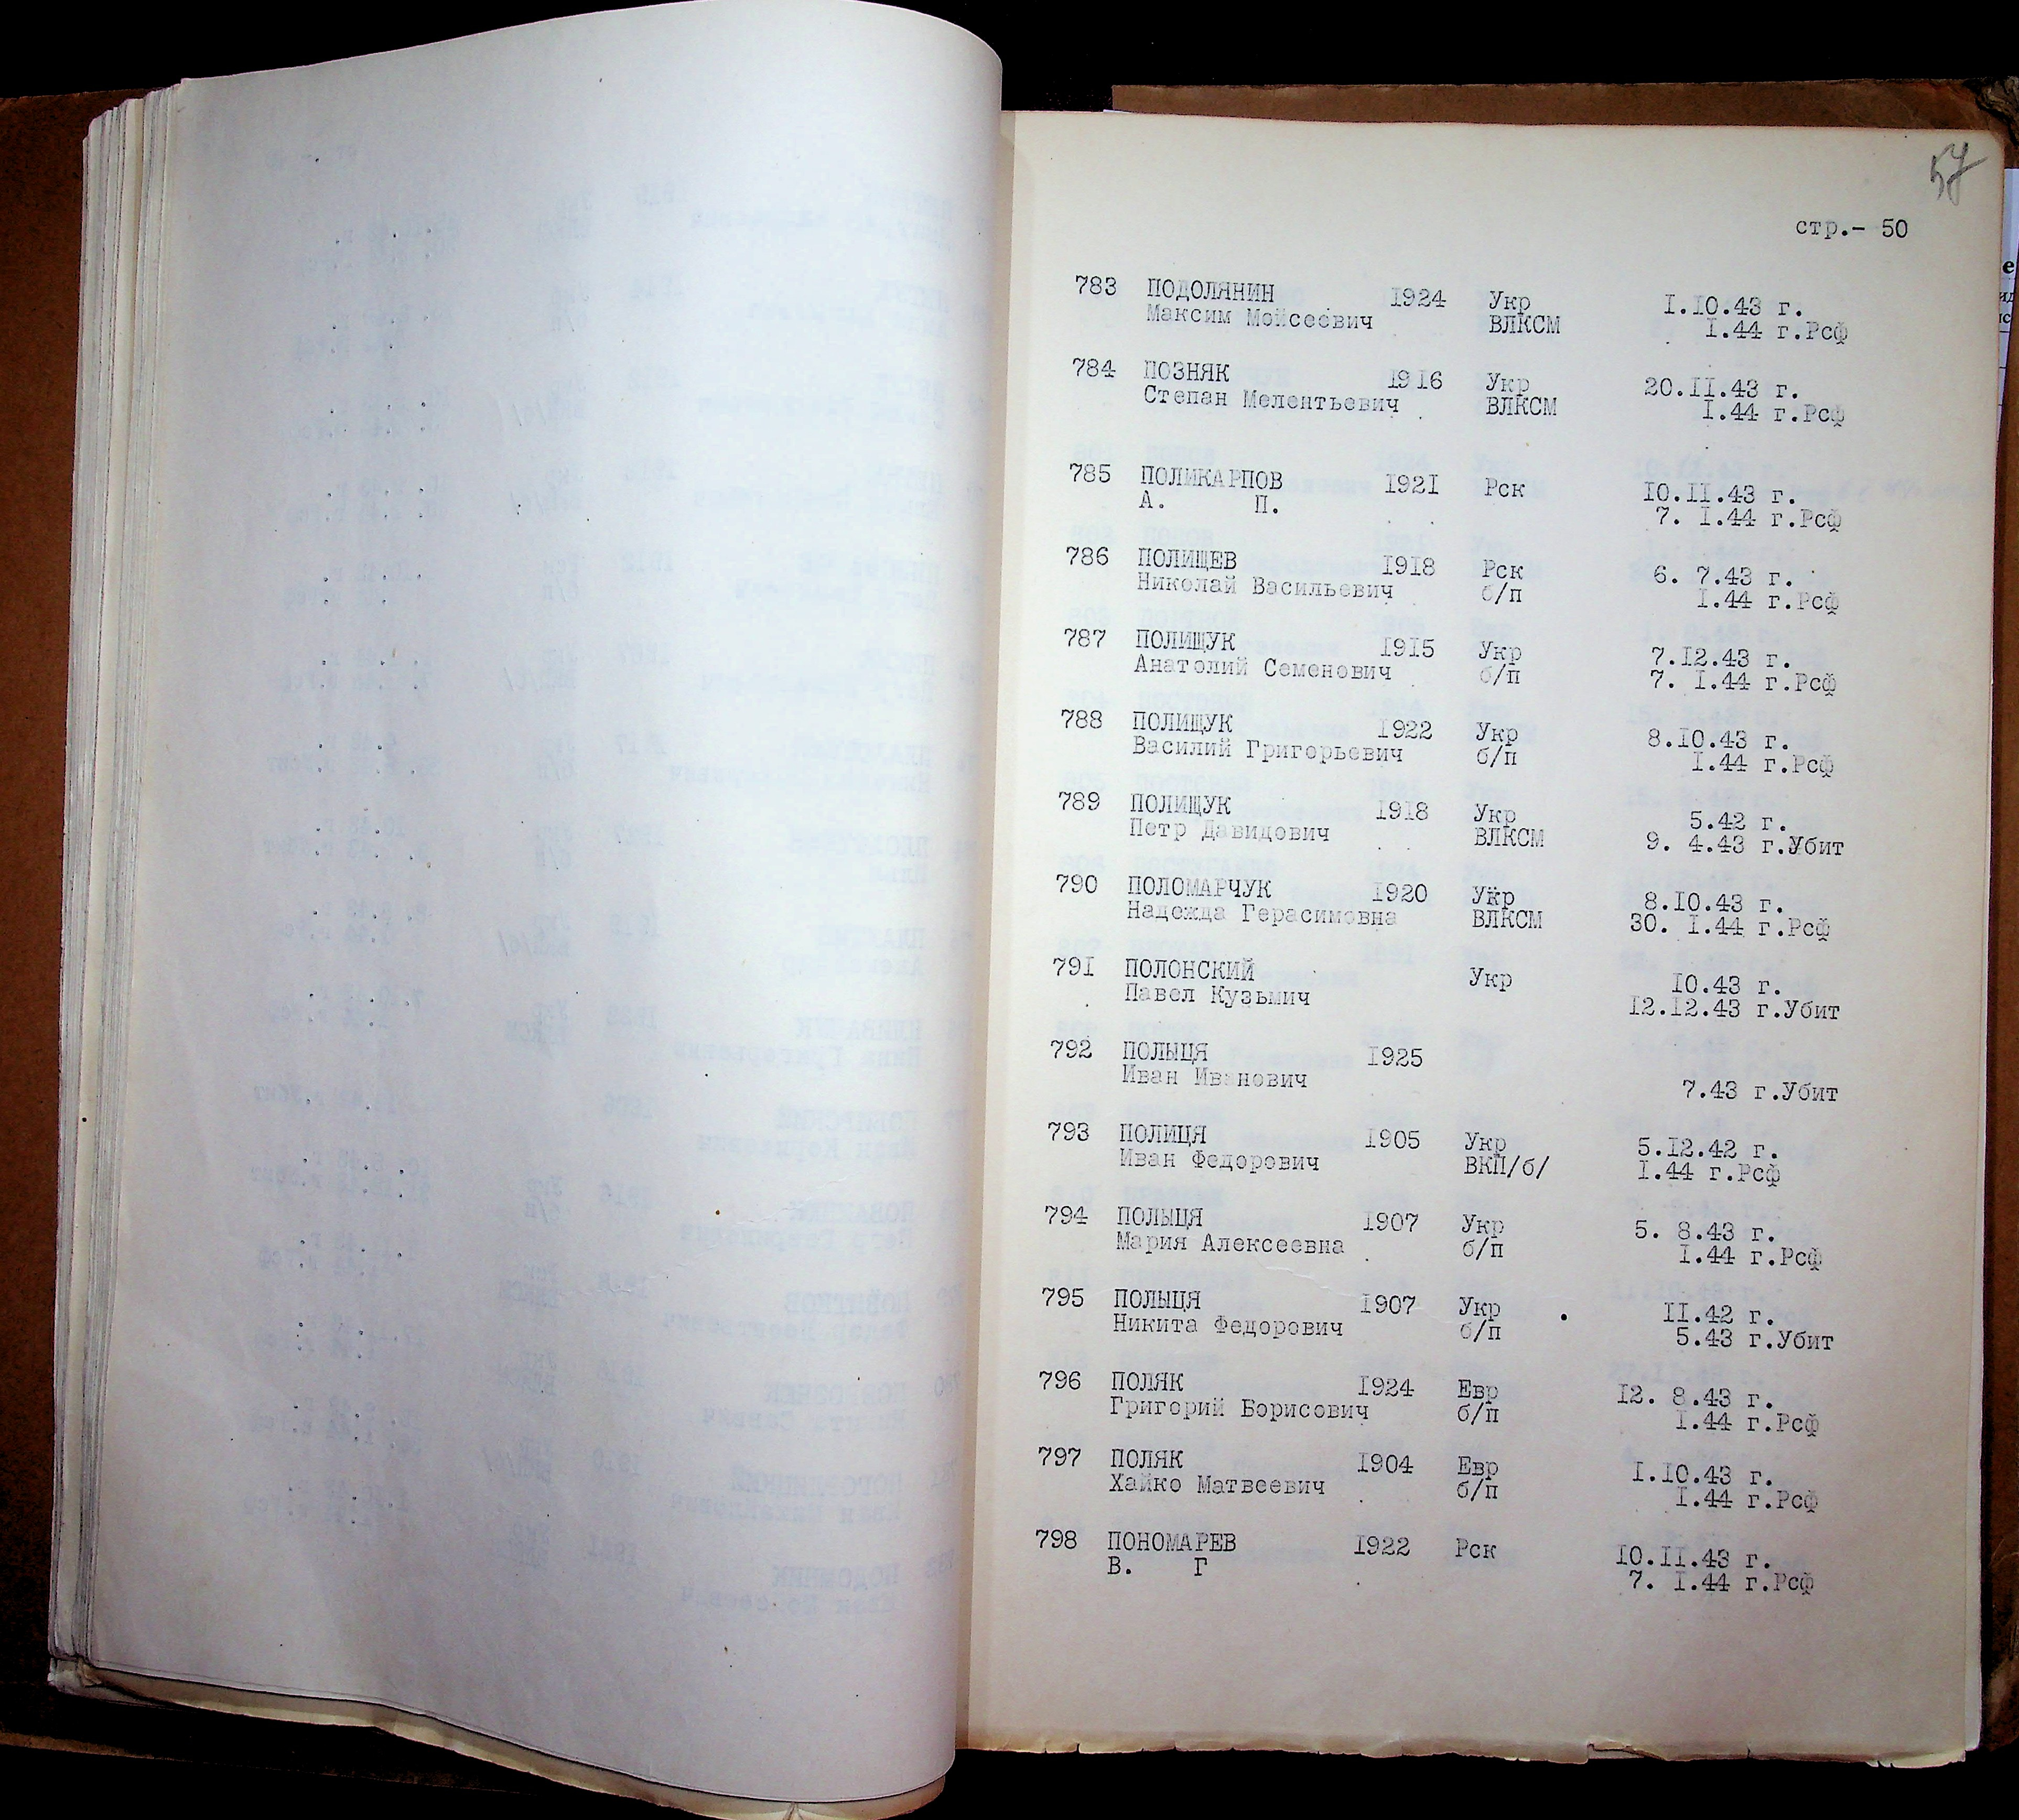 57
стр.- 50
783 ПОДОЛЯНИН 1924 Укр 1.10.43 г.
Максим Мойсеевич ВЛКСМ 1.44 г.Рсф
784 ПОЗНЯК 1916 Укр 20.11.43 г.
Степан Мелентьевич ВЛКСМ 1.44 г.Рсф
785 ПОЛИКАРПОВ 1921 Рск 10.11.43 г.
А. П. 7. 1.44 г.Рсф
786 ПОЛИЩЕВ 1918 Рск 6. 7.43 г.
Николай Васильевич б/п 1.44 г.Рсф
787 ПОЛИЩУК 1915 Укр 7.12.43 г.
Анатолий Семенович б/п 7. 1.44 г.Рсф
788 ПОЛИЩУК 1922 Укр 8.10.43 г.
Василий Григорьевич б/п 1.44 г.Рсф
789 ПОЛИЩУК 1918 Укр 5.42 г.
Петр Давидович ВЛКСМ 9. 4.43 г.Убит
790 ПОЛОМАРЧУК 1920 Укр 8.10.43 г.
Надежда Герасимовна ВЛКСМ 30. 1.44 г.Рсф
791 ПОЛОНСКИЙ Укр 10.43 г.
Павел Кузьмич 12.12.43 г.Убит
792 ПОЛЫЦЯ 1925
Иван Иванович 7.43 г.Убит
793 ПОЛИЦЯ 1905 Укр 5.12.42 г.
Иван Федорович ВКП/б/ 1.44 г.Рсф
794 ПОЛЫЦЯ 1907 Укр 5. 8.43 г.
Мария Алексеевна б/п 1.44 г.Рсф
795 ПОЛЫЦЯ 1907 Укр 11.42 г.
Никита Федорович б/п 5.43 г.Убит
796 ПОЛЯК 1924 Евр 12. 8.43 г.
Григорий Борисович б/п 1.44 г.Рсф
797 ПОЛЯК 1904 Евр 1.10.43 г.
Хайко Матвеевич б/п 1.44 г.Рсф
798 ПОНОМАРЕВ 1922 Рск 10.11.43 г.
В. Г 7. 1.44 г.Рсф